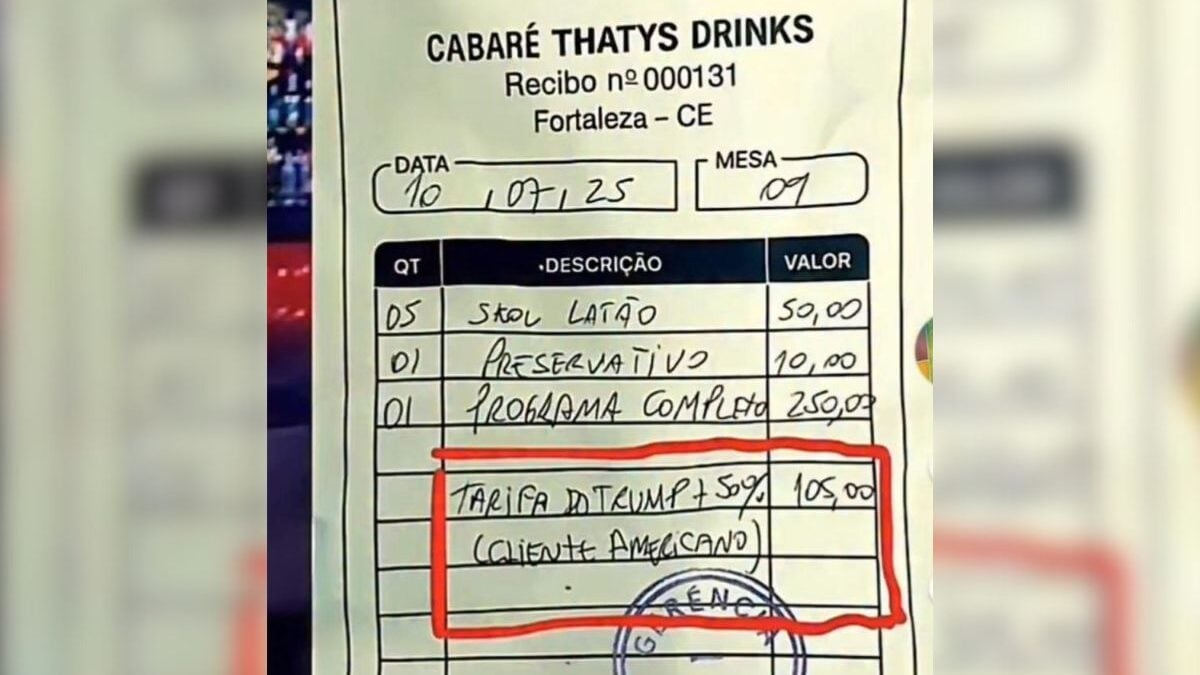 CABARÉ THATYS DRINKS
Recibo nº 000131
Fortaleza – CE
DATA MESA
10 , 07 , 25 09
QT DESCRIÇÃO VALOR
05 SKOL LATÃO 50,00
01 PRESERVATIVO 10,00
01 PROGRAMA COMPLETO 250,00
TARIFA DO TRUMP + 50% 105,00
(CLIENTE AMERICANO)
GERÊNCIA